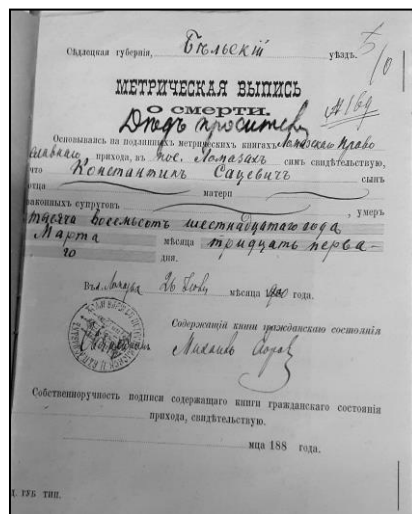 Сѣдлецкая губернія, Бѣльскій уѣздъ.
МЕТРИЧЕСКАЯ ВЫПИСЬ
О СМЕРТИ.
Дѣдъ просителя
Основываясь на поданныхъ метрическихъ книгахъ Ломазскаго Право
славнаго прихода, въ пос. Ломазахъ симъ свидѣтельствую,
что Константинъ Сацевичъ сынъ
отца матери
законныхъ супруговъ , умеръ
тысяча восемьсотъ шестнадцатаго года
Марта мѣсяца тридцать перва-
го дня.
Въ Ломазы 26 мѣсяца 1900 года.
Содержащій книги гражданскаго состоянія
Михаилъ
Собственноручность подписи содержащаго книги гражданскаго состоянія
прихода, свидѣтельствую.
мца 188 года.
ГУБ ТИП.